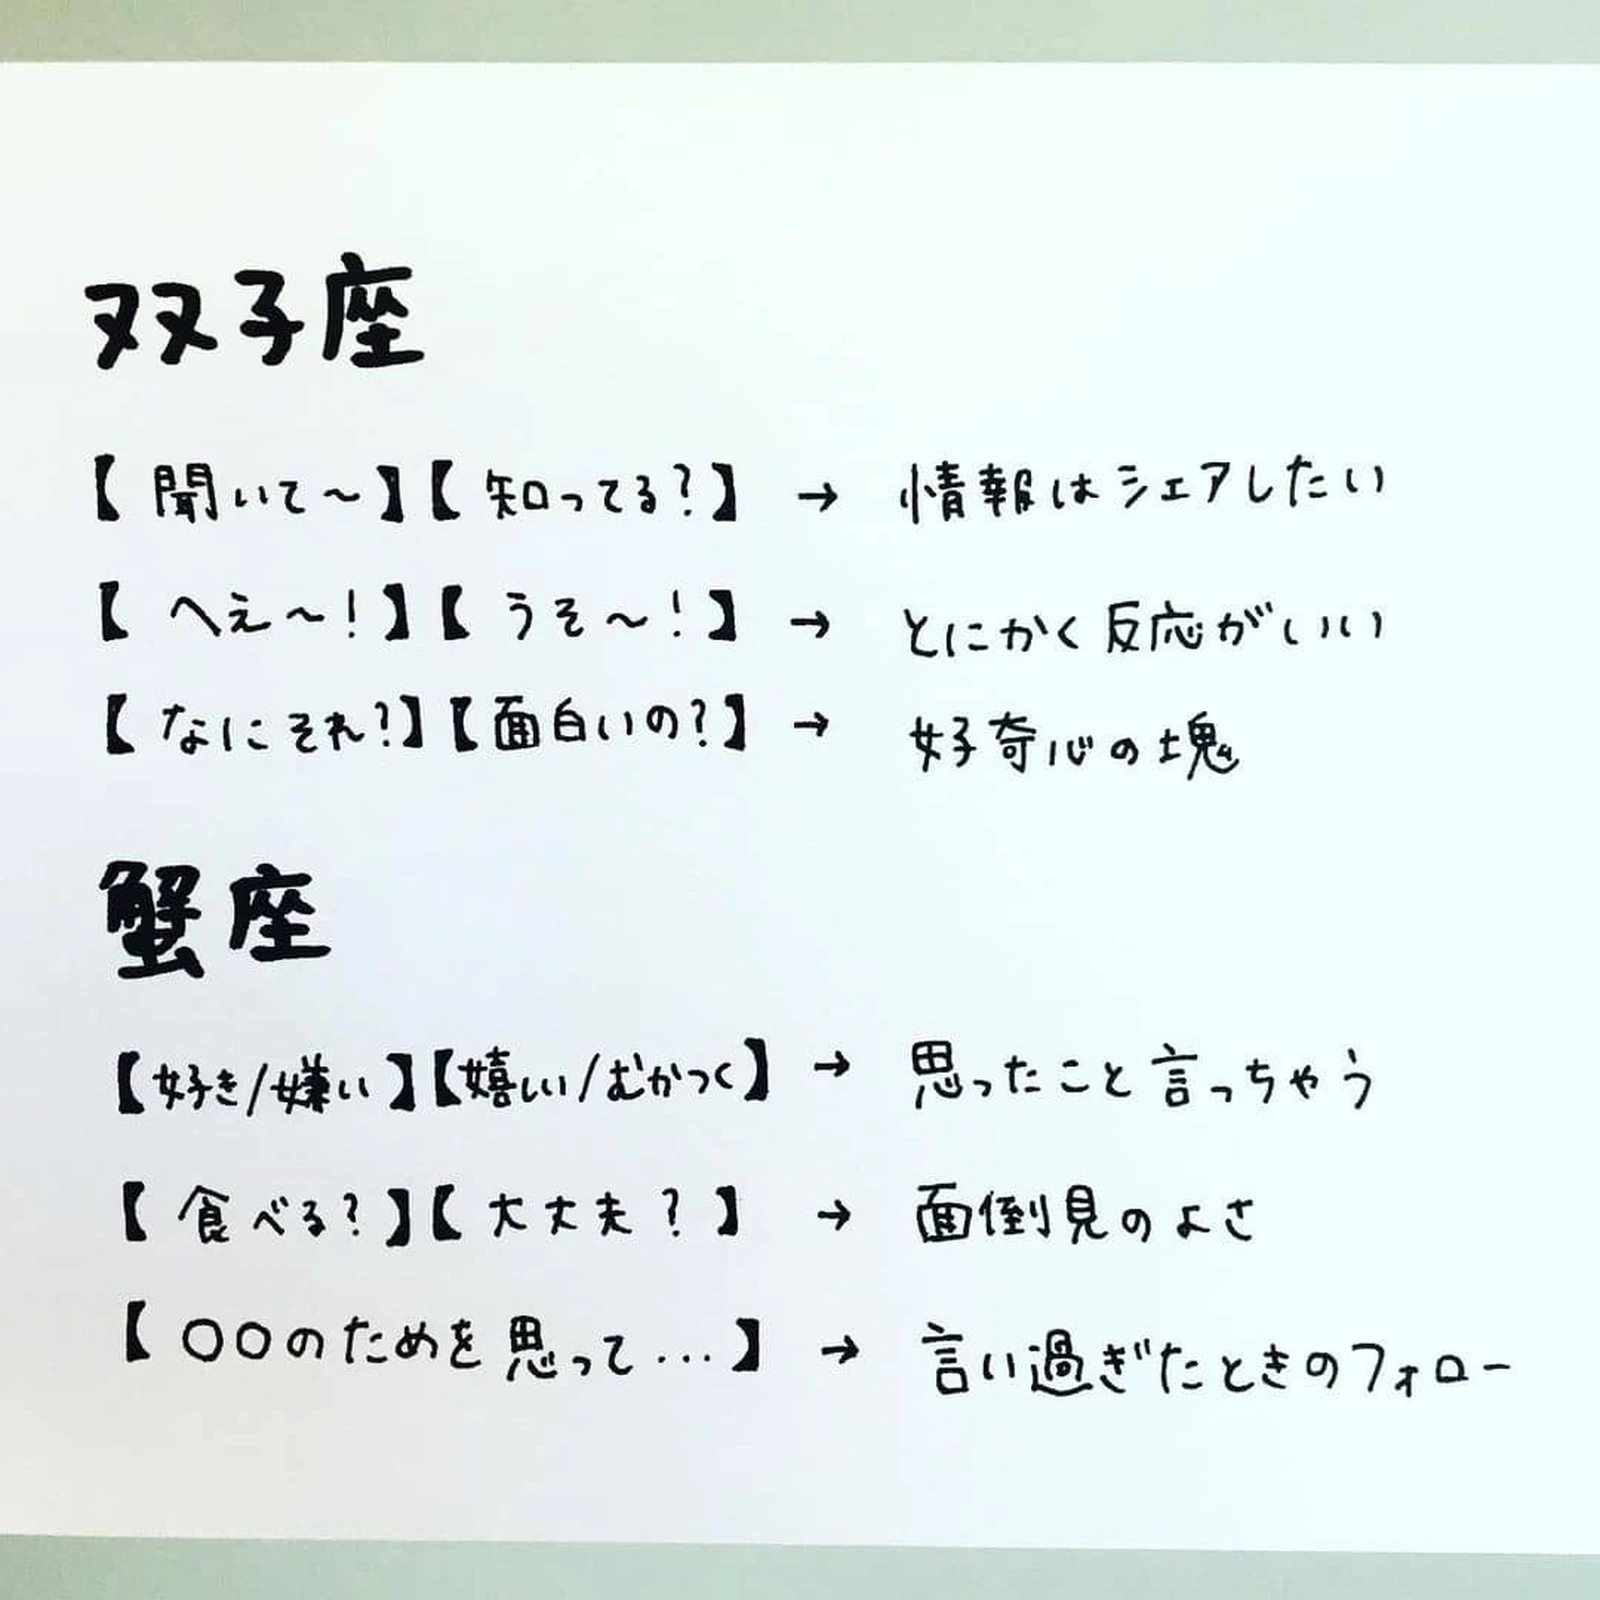 双子座
【聞いて～】【知ってる？】→ 情報はシェアしたい
【へえ～！】【うそ～！】→ とにかく反応がいい
【なにそれ？】【面白いの？】→ 好奇心の塊
蟹座
【好き/嫌い】【嬉しい/むかつく】→ 思ったこと言っちゃう
【食べる？】【大丈夫？】→ 面倒見のよさ
【〇〇のためを思って...】→ 言い過ぎたときのフォロー